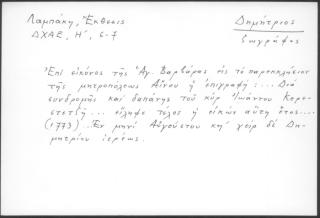 Λαμπάκη, Ἔκθεσις
Δημήτριος
ΔΧΑΕ, Η', 6-7
ζωγράφος
Ἐπὶ εἰκόνος τῆς Ἁγ. Βαρβάρας εἰς τὸ παρεκκλήσιον
τῆς μητροπόλεως Αἴνου ἡ ἐπιγραφή: ... Διὰ
συνδρομῆς καὶ δαπάνης τοῦ κὺρ Ἰωάννου
... εἴληφε τέλος ἡ εἰκὼν αὕτη ἔτος ...
(1773) Ἐν μηνὶ Αὐγούστου κη' χεὶρ δὲ Δη-
μητρίου ἱερέως.